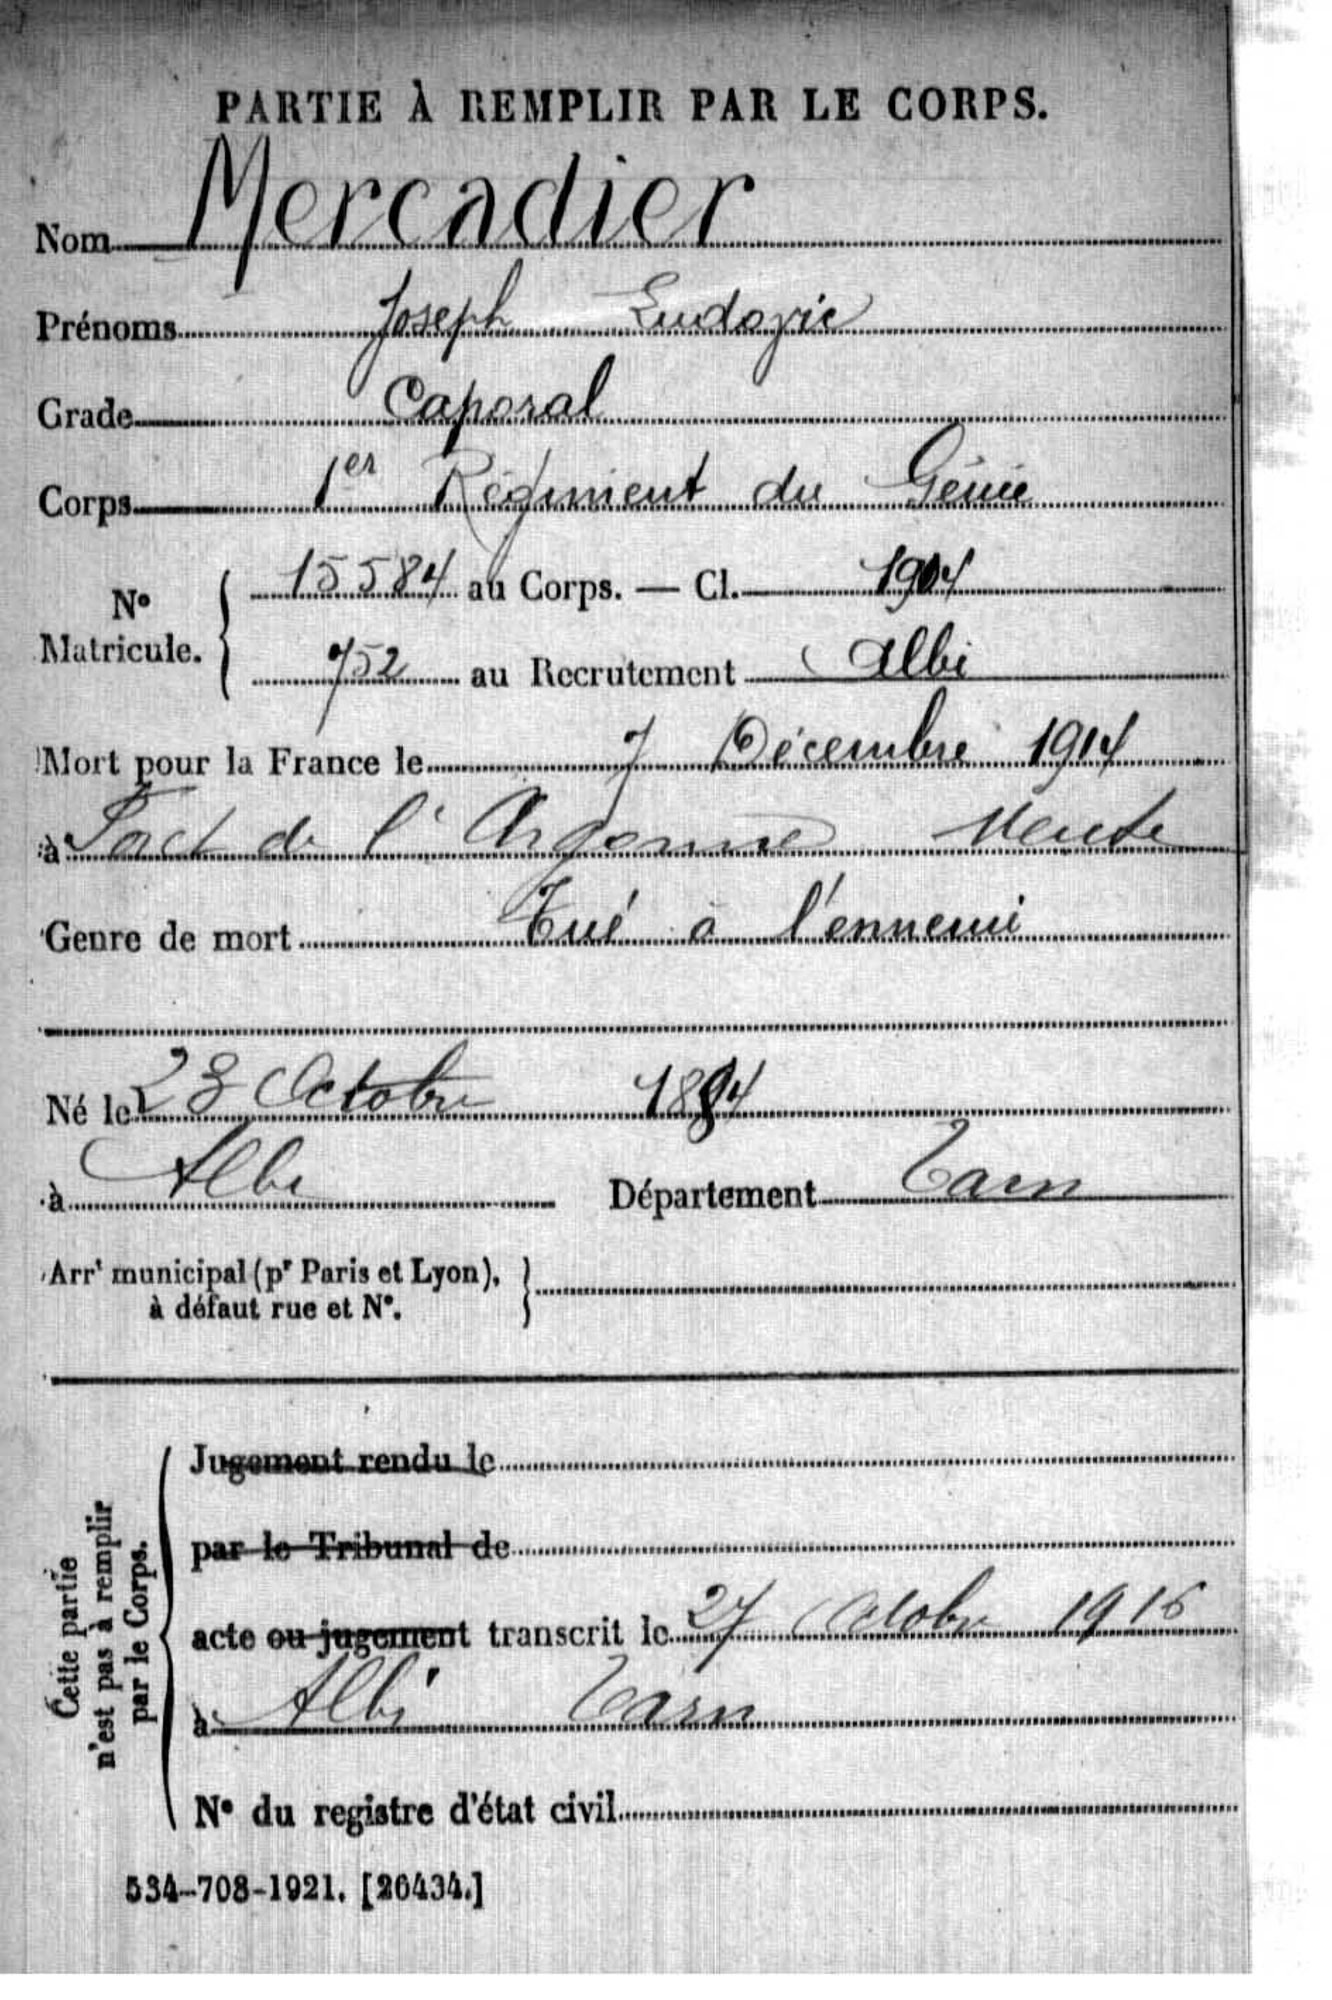 PARTIE À REMPLIR PAR LE CORPS.
Nom Mercadier
Prénoms Joseph Ludovic
Grade Caporal
Corps 1er Régiment du Génie
N° Matricule. 15584 au Corps. — Cl. 1904
752 au Recrutement Albi
Mort pour la France le 7 Décembre 1914
à de l'Argonne Meuse
Genre de mort Tué à l'ennemi
Né le 28 Octobre 1884
à Albi Département Tarn
Arrt municipal (pr Paris et Lyon),
à défaut rue et N°.
Cette partie
n'est pas à remplir
par le Corps.
Jugement rendu le
par le Tribunal de
acte ou jugement transcrit le 27 Octobre 1916
à Albi Tarn
N° du registre d'état civil
534-708-1921. [26434.]